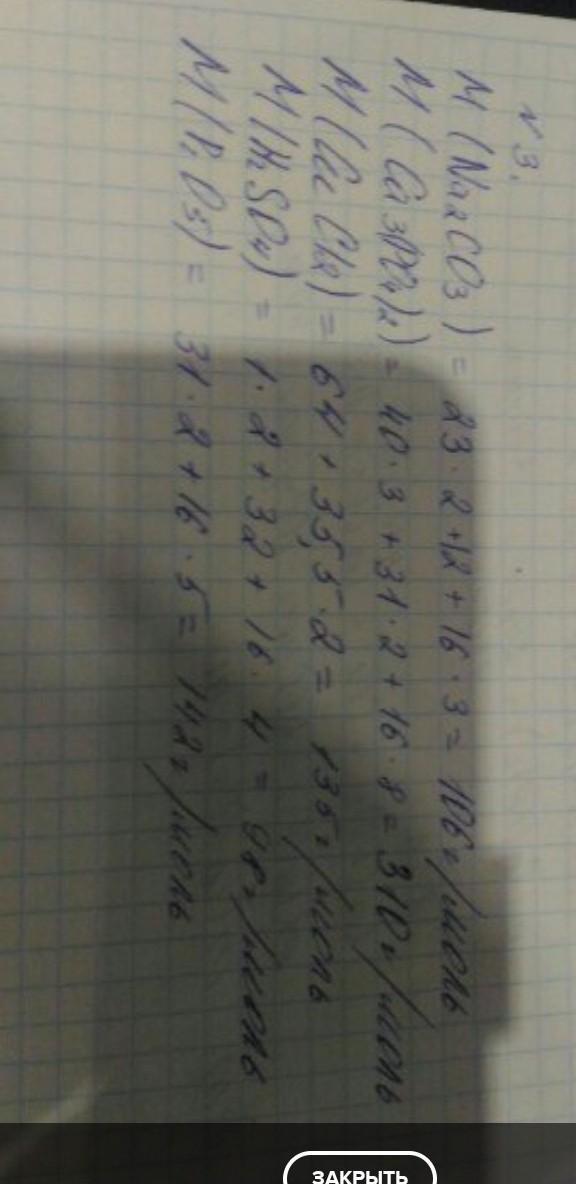 N 3.
M (Na2CO3) = 23·2+12+16·3 = 106г/моль
M (Ca3PO4)2) = 40·3+31·2+16·8 = 310г/моль
M (CuCl2) = 64+35,5·2 = 135г/моль
M (H2SO4) = 1·2+32+16·4 = 98г/моль
M (P2O5) = 31·2+16·5 = 142г/моль
ЗАКРЫТЬ